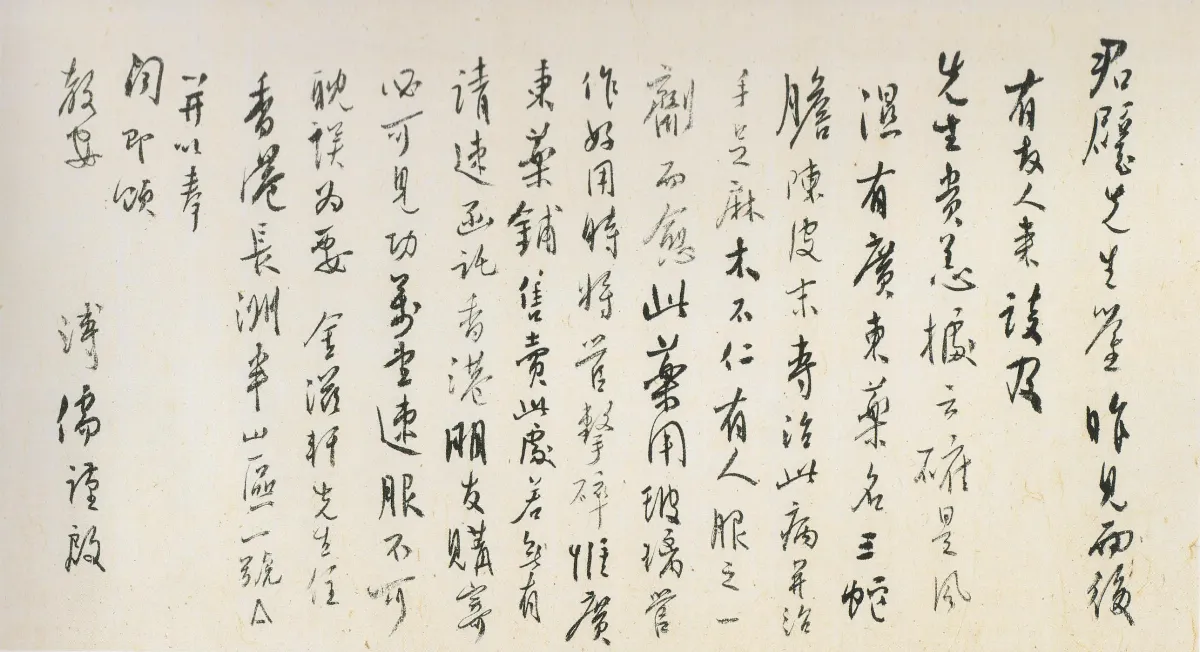 君璧先生鉴昨見面後
有友人来談及
先生貴恙據云確是风
濕有廣東藥名三蛇
膽陳皮末專治此病并治
手足麻木不仁有人服之一
劑而愈此藥用玻璃管
作好用時將管擊碎惟廣
東藥鋪售賣此處若無有
請速函託香港朋友購寄
必可見功萬望速服不可
耽誤為要 金滋軒先生住
香港長洲半山區一號A
并以奉
聞即頌
教安
溥儒謹啟